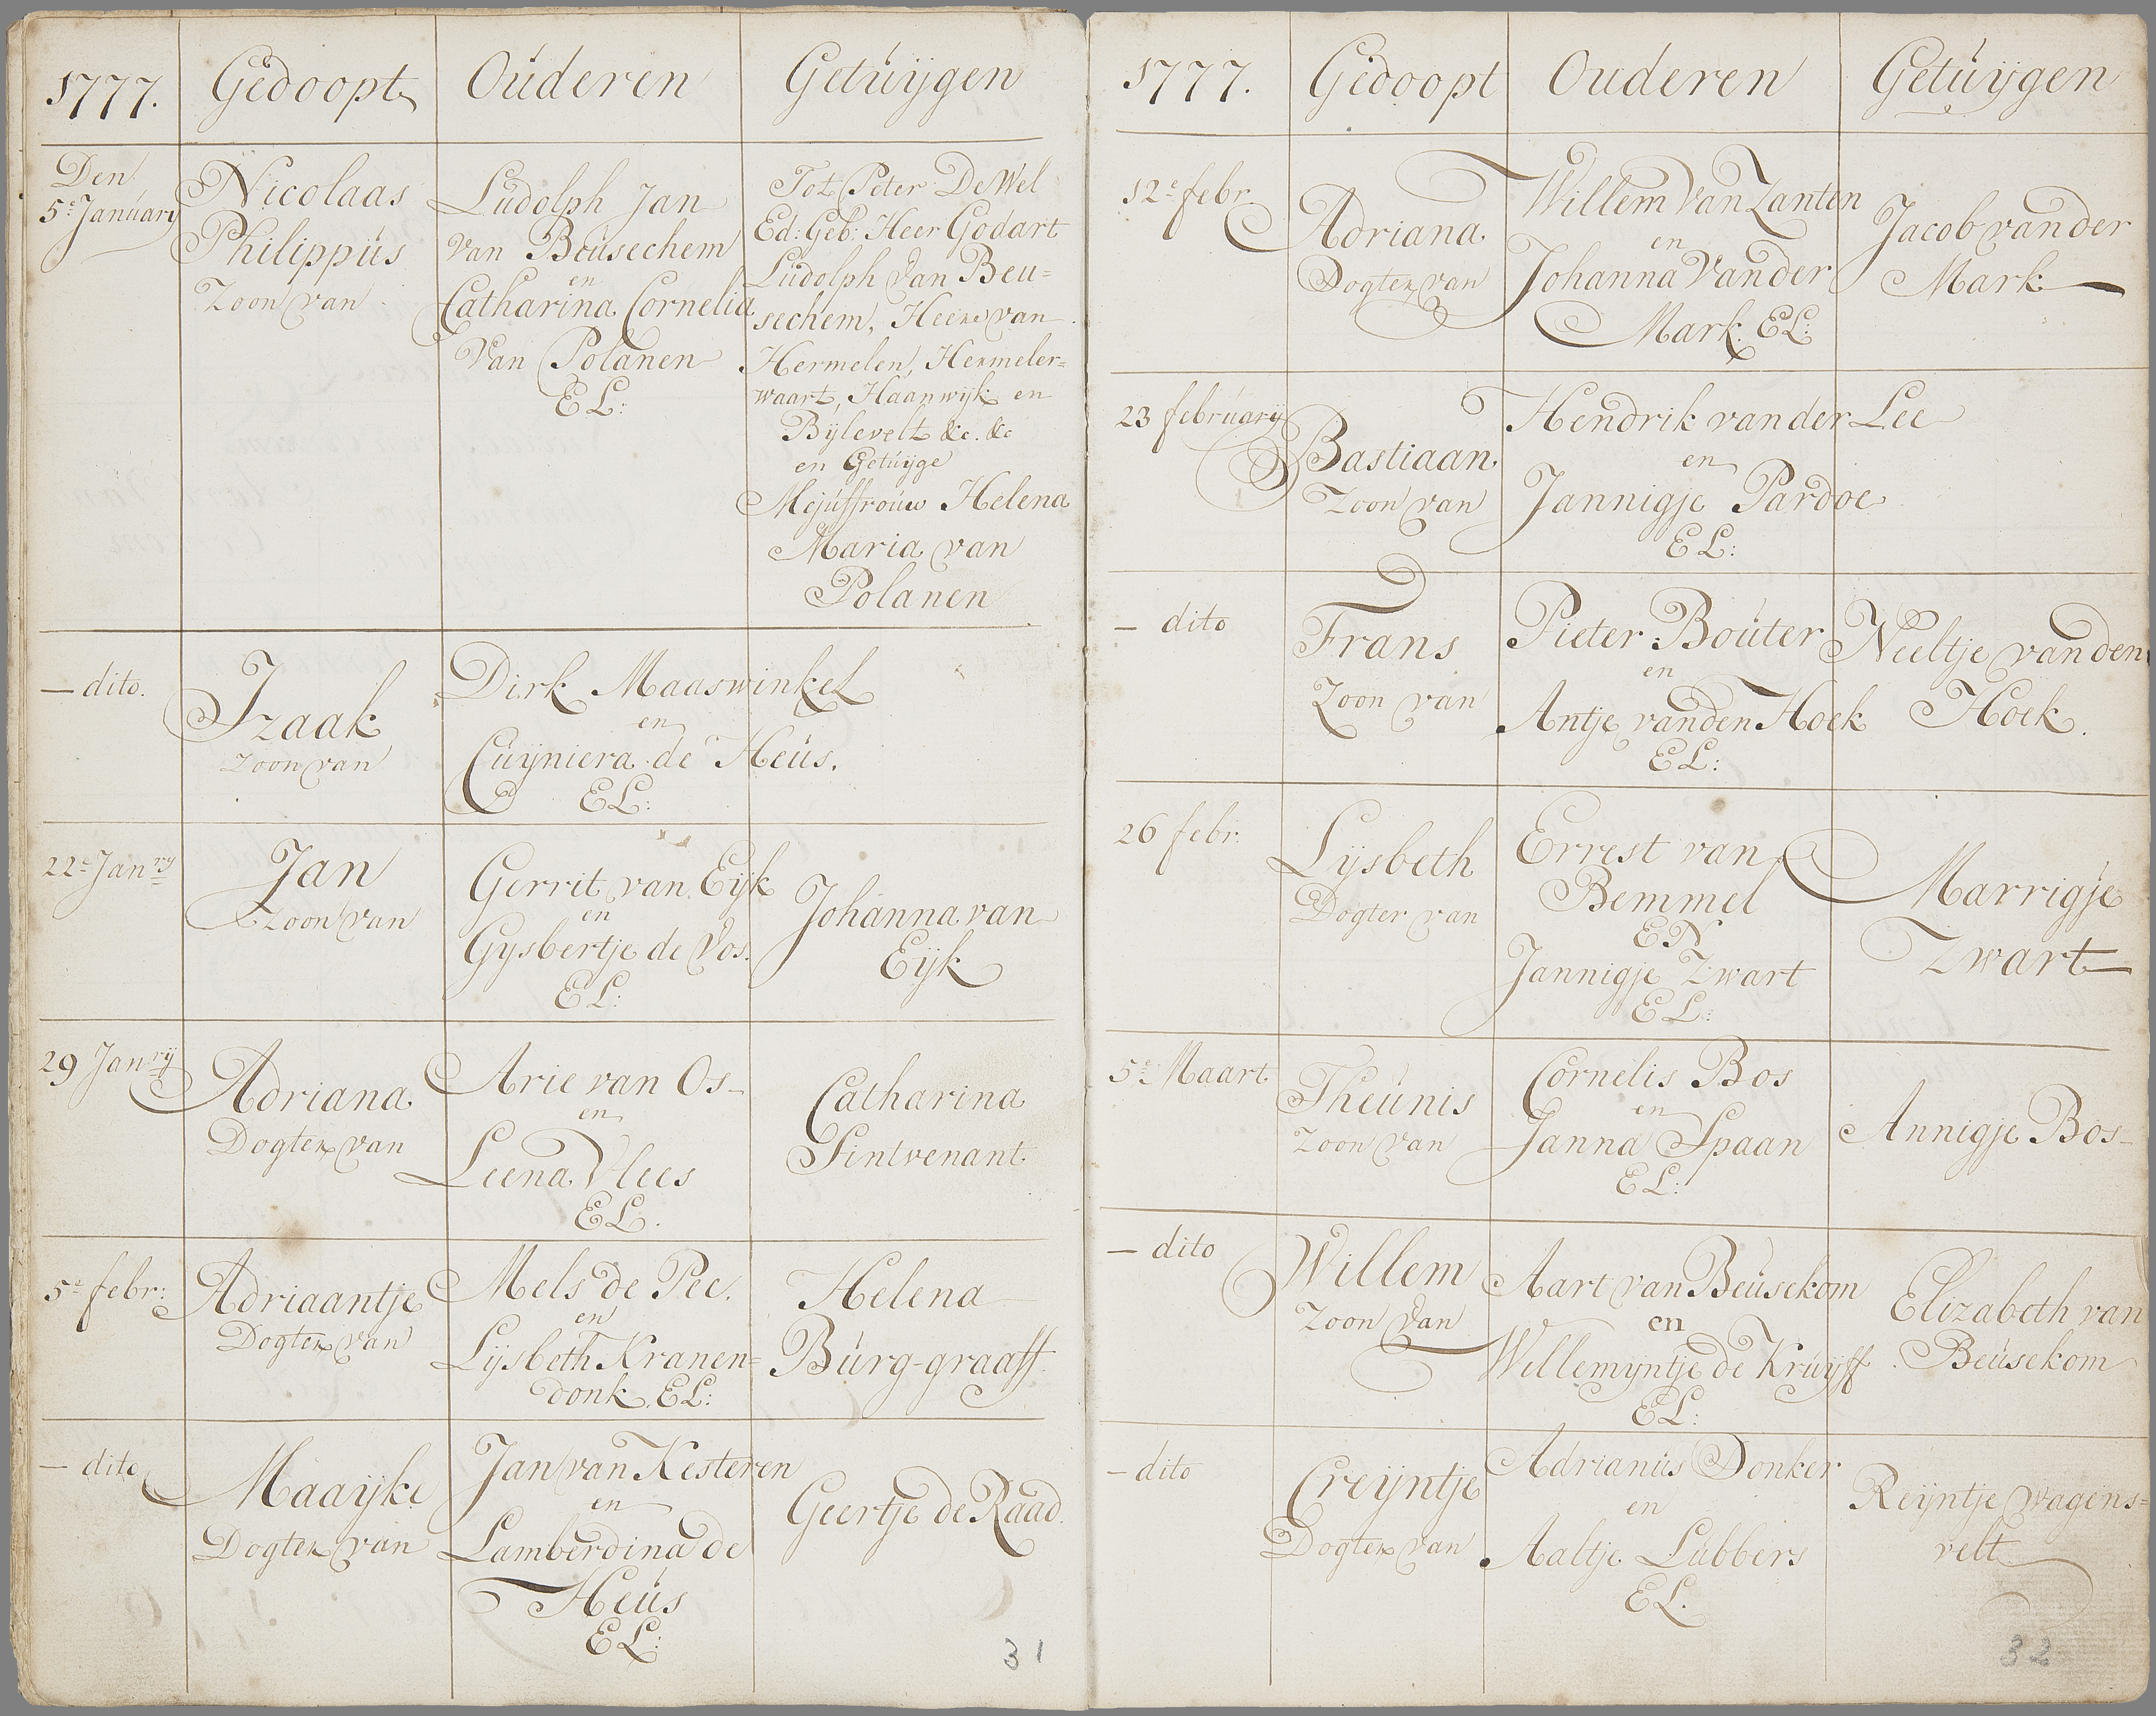 1777. Gedoopt Ouderen Getuijgen
Den
5e January
Nicolaas
Philippus
Zoon van
Ludolph Jan
van Beusechem
en
Catharina Cornelia
Van Polanen
EL:
Tot Peter De Wel
Ed: Geb: Heer Godart
Ludolph Van Beu=
sechem, Heere van
Hermelen, Hermeler=
waart, Haanwijk en
Bijlevelt &c. &c
en Getuijge
Mejuffrouw Helena
Maria van
Polanen
— dito.
Izaak
Zoon van
Dirk Maaswinkel
en
Cuijniera de Heus.
EL:
22e Janry
Jan
Zoon van
Gerrit van Eijk
en
Gysbertje de Vos.
EL:
Johanna van
Eijk
29 Janrij
Adriana
Dogter van
Arie van Os
en
Leena Vlees
EL.
Catharina
Sintvenant
5e febr:
Adriaantje
Dogter van
Mels de Pee.
en
Lijsbeth Kranen=
donk. EL:
Helena
Burg-graaff
— dito
Maaijke
Dogter van
Jan van Kesteren
en
Lamberdina de
Heus
EL:
Geertje de Raad.
31
1777. Gedoopt Ouderen Getuijgen
12e febr.
Adriana
Dogter van
Willem Van Zanten
en
Johanna Vander
Mark. EL:
Jacob vander
Mark
23 february
Bastiaan
Zoon van
Hendrik vander Lee
en
Jannigje Pardoe
EL:
— dito
Frans
Zoon van
Pieter Bouter
en
Antje vanden Hoek
EL:
Neeltje vanden
Hoek.
26 febr:
Lijsbeth
Dogter van
Errest van
Bemmel
EN
Jannigje Zwart
EL:
Marrigje
Zwart
5e Maart
Theunis
Zoon van
Cornelis Bos
en
Janna Spaan
EL:
Annigje Bos
— dito
Willem
Zoon van
Aart van Beusekom
en
Willemyntje de Kruijff
EL:
Elizabeth van
Beusekom
— dito
Creijntje
Dogter van
Adrianus Donker
en
Aaltje Lubbers
EL.
Reijntje Wagens=
velt
32